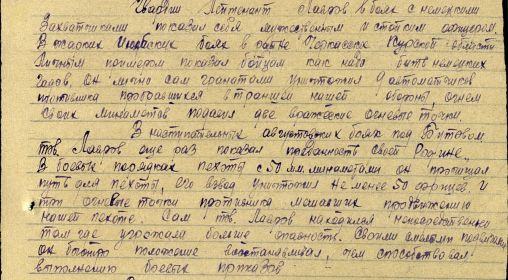 Младш Лейтенант Лавров в боях с немецкими
Захватчиками показал себя мужественным и стойким офицером.
В жарких Июльских боях в районе Черкасское Курской области
Личным примером показал бойцам как надо бить немецких
гадов. Он лично сам гранатами уничтожил 9 автоматчиков
противника прорвавшихся в траншеи нашей обороны, огнем
своих минометов подавил две вражеские огневые точки,
В наступательных августовских боях под
тов Лавров еще раз показал преданность своей Родине.
В боевых порядках пехоты с 50 мм. минометами он прочищал
путь для пехоты, его взвод уничтожил не менее 50 фрицев. и
три огневые точки противника мешающих продвижению
нашей пехоте. Сам тов. Лавров находился непосредственно
там где угрожала больше опасность. Своими смелыми подвигами
он быстро положение восстанавливал, чем способствовал
выполнению боевых приказов